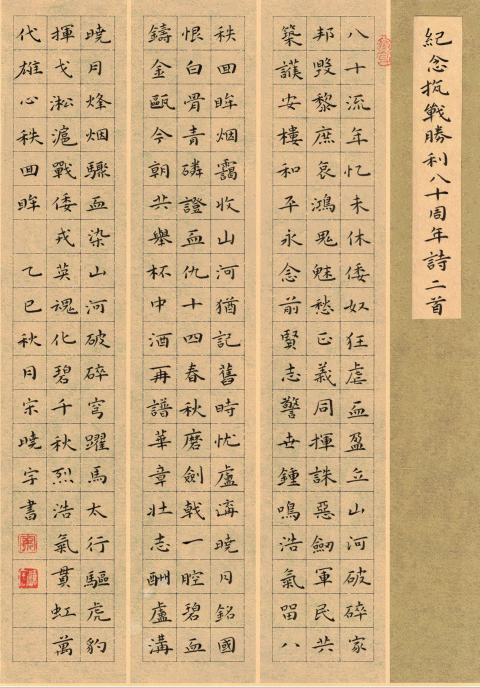 紀念抗戰勝利八十周年詩二首
八十流年忆未休倭奴狂虐血盈丘山河破碎家
邦毀黎庶哀鴻鬼魅愁正義同揮誅惡劒軍民共
築護安樓和平永念前賢志警世鍾鳴浩氣畱八
秩回眸烟靄收山河猶記舊時忧盧溝曉月銘國
恨白骨青磷證血仇十四春秋磨劍戟一腔碧血
鑄金甌今朝共舉杯中酒再譜華章壯志酬盧溝
曉月烽烟驟血染山河破碎穹躍馬太行驅虎豹
揮戈淞滬戰倭戎英魂化碧千秋烈浩氣貫虹萬
代雄心秩回眸 乙巳秋月宋曉字書